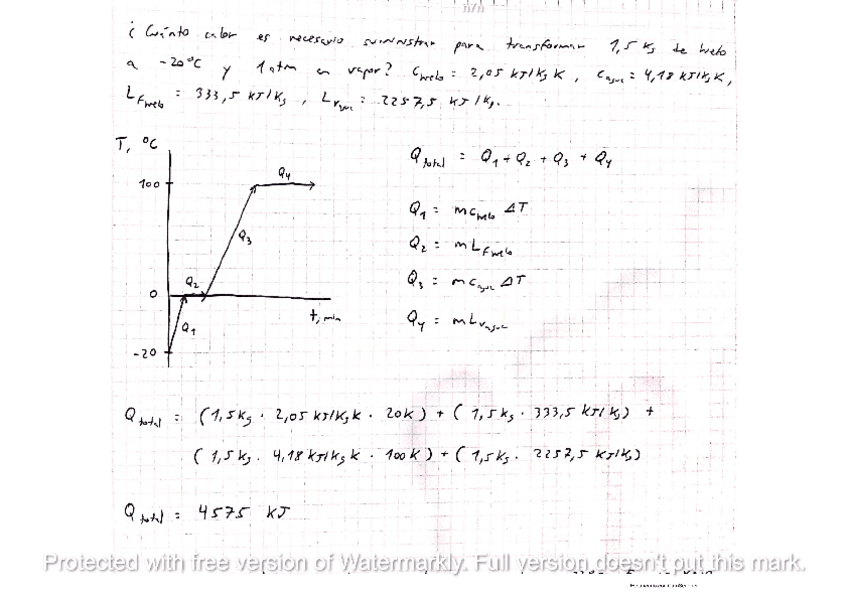 ¿Cuánto calor es necesario suministrar para transformar 1,5 kg de hielo
a -20°C y 1 atm en vapor? c hielo = 2,05 kJ/kg K, c agua = 4,18 kJ/kg K,
L F hielo = 333,5 kJ/kg, L v agua = 2257,5 kJ/kg.
T, °C
100
0
-20
Q1
Q2
Q3
Q4
t, min
Q total = Q1 + Q2 + Q3 + Q4
Q1 = m c hielo ΔT
Q2 = m L F hielo
Q3 = m c agua ΔT
Q4 = m L v agua
Q total = (1,5 kg · 2,05 kJ/kg K · 20K) + (1,5 kg · 333,5 kJ/kg) +
(1,5 kg · 4,18 kJ/kg K · 100 K) + (1,5 kg · 2257,5 kJ/kg)
Q total = 4575 kJ
Protected with free version of Watermarkly. Full version doesn't put this mark.